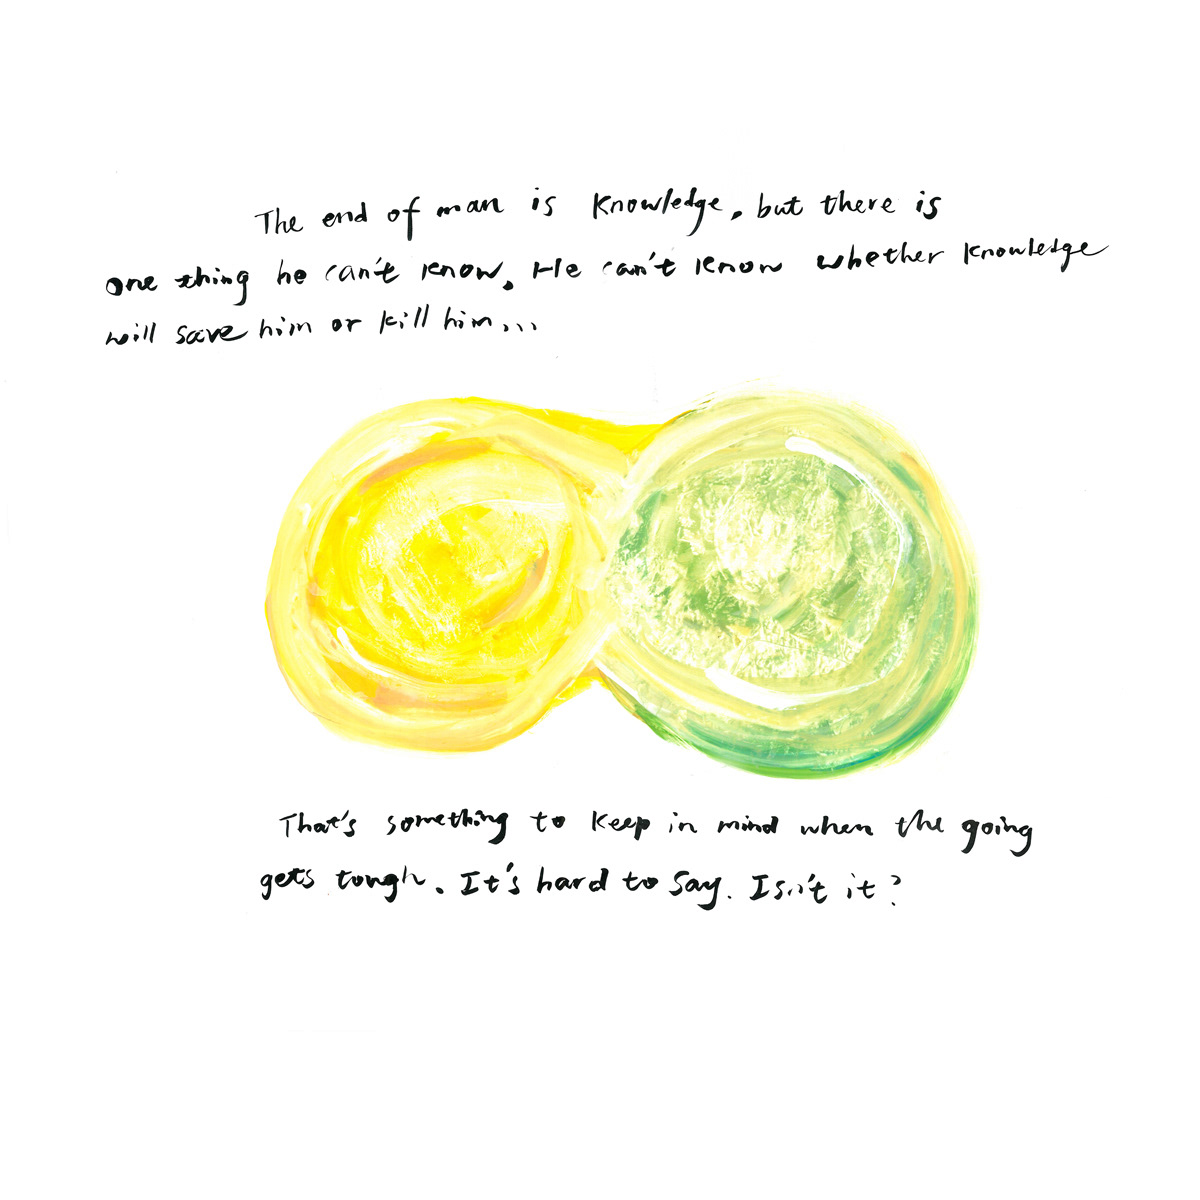 The end of man is knowledge, but there is
one thing he can't know. He can't know whether knowledge
will save him or kill him...
That's something to keep in mind when the going
gets tough. It's hard to say. Isn't it?